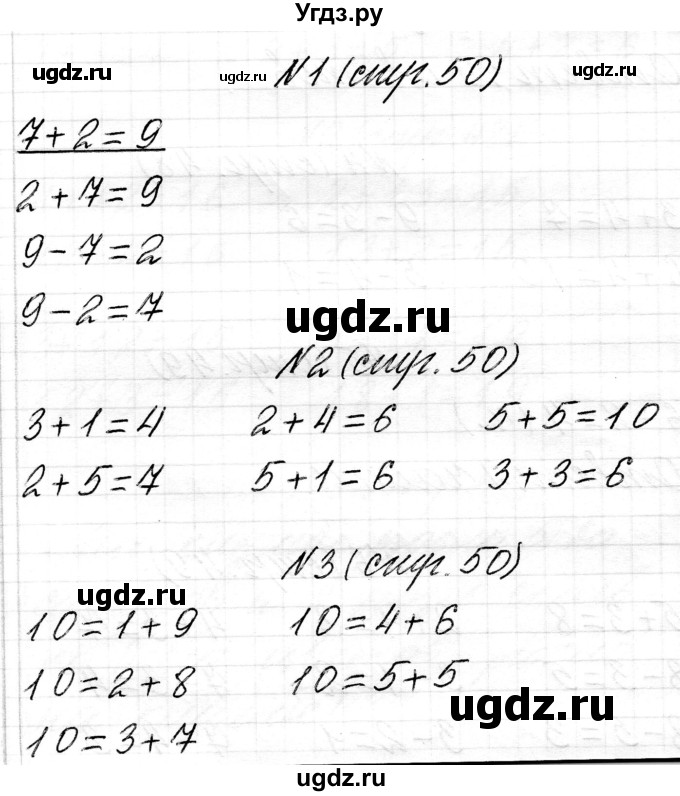 Угдз.ру
ugdz.ru ugdz.ru ugdz.ru
№1 (стр. 50)
7+2=9
2+7=9
9-7=2
9-2=7
ugdz.ru
№2 (стр. 50)
3+1=4 2+4=6 5+5=10
2+5=7 5+1=6 3+3=6
№3 (стр. 50)
ugdz.ru
10=1+9 10=4+6
10=2+8 10=5+5
ugdz.ru
10=3+7
ugdz.ru